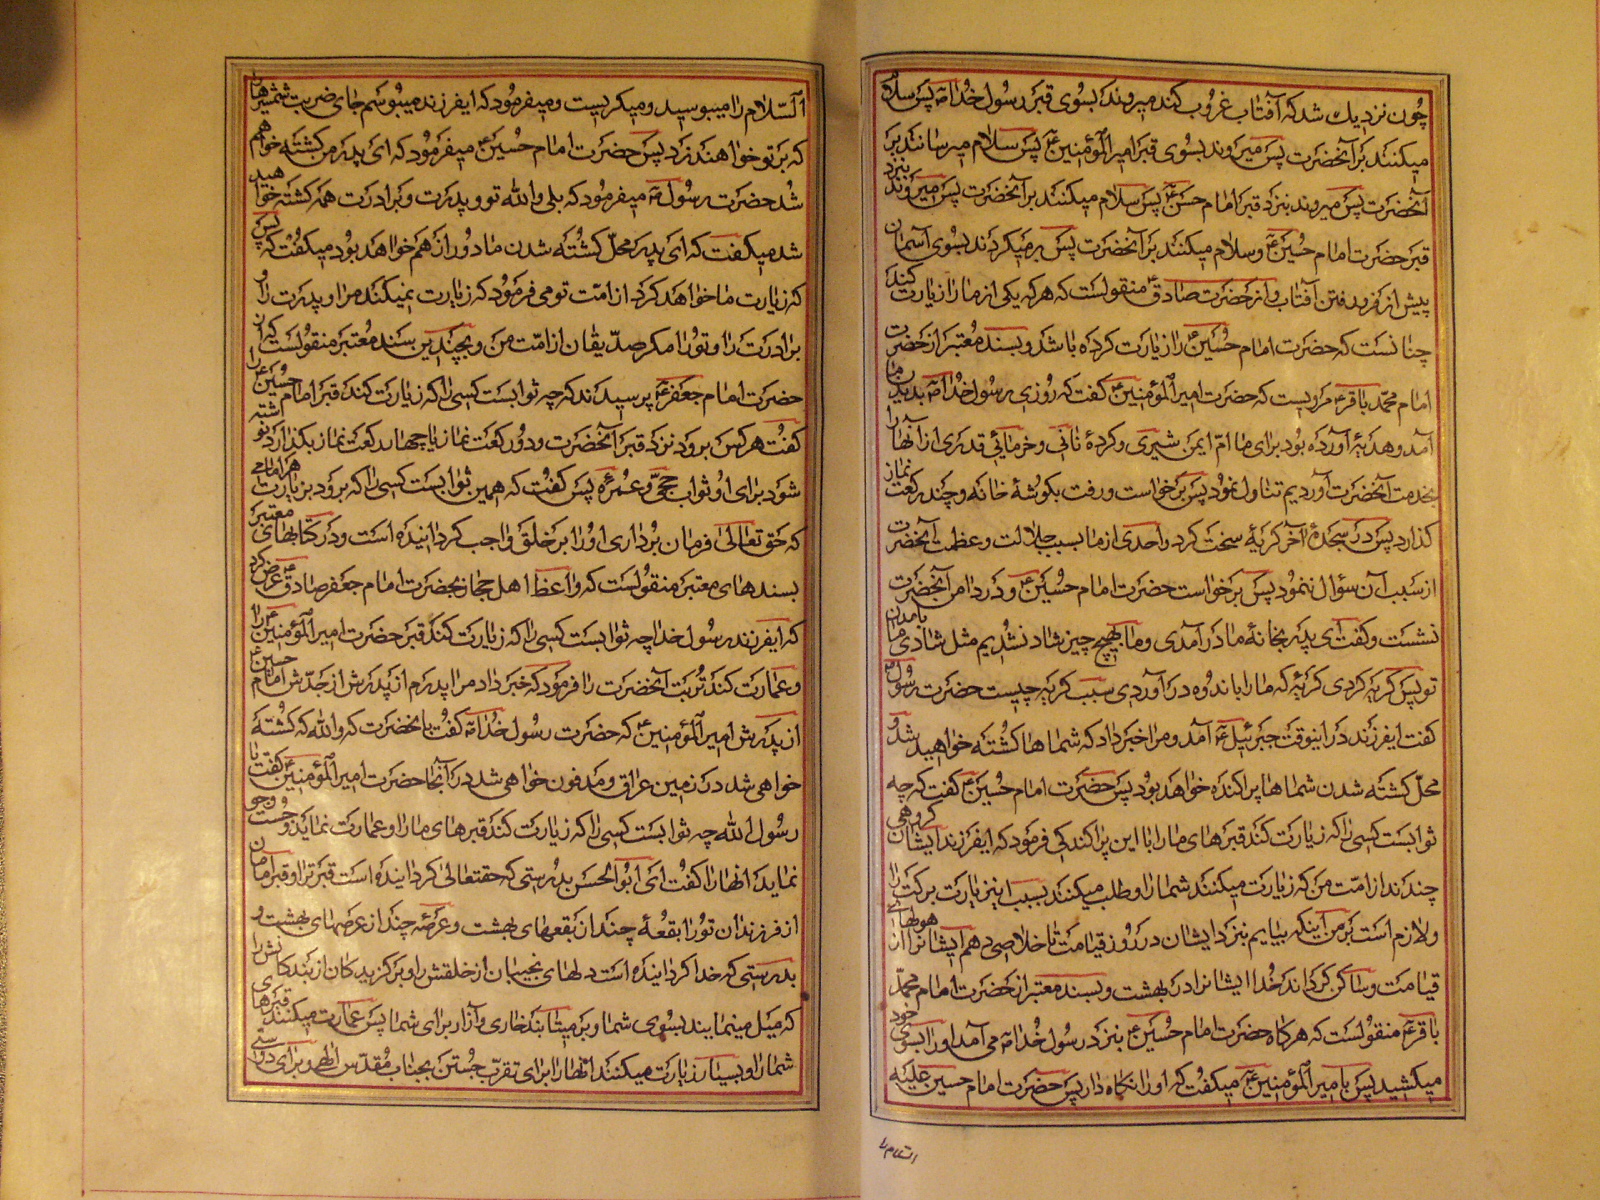 چون نزدیك شد که آفتاب غروب کند میروند بسوی قبر رسول خدا ص پس سلام
میکنند بر آنحضرت پس میروند بسوی قبر امیر المؤمنین ع پس سلام میرسانند بر
آنحضرت پس میروند بنزد قبر امام حسن ع پس سلام میکنند بر آنحضرت پس میروند بنزد
قبر حضرت امام حسین ع وسلام میکنند بر آنحضرت پس برمیگردند بسوی آسمان
پیش از فرو رفتن آفتاب واز حضرت صادق ع منقولست که هر که یکی از ما را زیارت کند
چنانست که حضرت امام حسین ع را زیارت کرده باشد وبسند معتبر از حضرت
امام محمد باقر ع مرویست که حضرت امیر المؤمنین ع گفت که روزی رسول خدا ص بدیدن ما
آمد وهدیۀ آورده بود برای ما ام ایمن شیری وکردۀ نانی وخرمائی قدری از آنها را
بخدمت آنحضرت آوردیم تناول نمود پس برخواست ورفت بکوشۀ خانه وچند رکعت نماز
گذارد پس در سجدۀ آخر گریۀ سخت کرد واحدی از ما بسبب جلالت وعظمت آنحضرت
از سبب آن سؤال ننمود پس برخواست حضرت امام حسین ع ودر دامن آنحضرت
نشست وگفت ای پدر بخانۀ ما در آمدی وما بهیچ چیز شاد نشدیم مثل شادی ما بآمدن
تو پس گریه کردی گریۀ که ما را باندوه در آوردی سبب گریه چیست حضرت رسول ص
گفت ایفرزند در اینوقت جبرئیل ع آمد ومرا خبر داد که شما ها کشته خواهید شد و
محل کشته شدن شما ها پراکنده خواهد بود پس حضرت امام حسین ع گفت که چه
ثوابست کسی را که زیارت کند قبرهای ما را با این پراکندکی فرمود که ایفرزند ایشان گروهی
چندند از امت من که زیارت میکنند شما را وطلب میکنند بسبب این زیارت برکت را
ولازم است بر من اینکه بیایم بنزد ایشان در روز قیامت تا خلاصی دهم ایشانرا از هولهای
قیامت وساکن گرداند خدا ایشانرا در بهشت وبسند معتبر از حضرت امام محمد
باقر ع منقولست که هرگاه حضرت امام حسین ع بنزد رسول خدا ص می آمد او را بسوی خود
میکشید پس بامیر المؤمنین ع میگفت که او را نگاه دار پس حضرت امام حسین علیه
السلام را
السلام را میبوسید ومیگریست ومیفرمود که ایفرزند میبوسم جای ضربت شمشیرها را
که بر تو خواهند زد پس حضرت امام حسین ع میفرمود که ای پدر من کشته خواهم
شد حضرت رسول ص میفرمود که بلی والله تو وپدرت وبرادرت همه کشته خواهید
شد میگفت که ای پدر محل کشته شدن ما دور از هم خواهد بود میگفت که پس
که زیارت ما خواهد کرد از امت تو می فرمود که زیارت نمیکند مرا وپدرت را و
برادرت را وتو را مگر صدیقان از امت من وبچندین سند معتبر منقولست که از
حضرت امام جعفر ع پرسیدند که چه ثوابست کسی را که زیارت کند قبر امام حسین ع را
گفت هر کس برود نزد قبر آنحضرت ودو رکعت نماز یا چهار رکعت نماز بگذارد نوشته
شود برای او ثواب حجی وعمرۀ پس گفت که همین ثوابست کسی را که برود بزیارت هر امامی
که حق تعالی فرمان برداری او را بر خلق واجب گردانیده است ودر کتابهای معتبر
بسندهای معتبر منقولست که واعظ اهل حجاز بحضرت امام جعفر صادق ع عرض کرد
که ایفرزند رسول خدا چه ثوابست کسی را که زیارت کند قبر حضرت امیر المؤمنین ع را
وعمارت کند تربت آنحضرت را فرمود که خبر داد مرا پدرم از پدرش از جدش امام حسین ع
از پدرش امیر المؤمنین ع که حضرت رسول خدا ص گفت بآنحضرت که والله که کشته
خواهی شد در زمین عراق ومدفون خواهی شد در آنجا حضرت امیر المؤمنین ع گفت یا
رسول الله چه ثوابست کسی را که زیارت کند قبرهای ما را وعمارت نماید وجست وجو
نماید انها را گفت ای ابو الحسن بدرستی که حقتعالی گردانیده است قبر ترا وقبر امامان
از فرزندان تو را بقعۀ چند از بقعهای بهشت وعرصۀ چند از عرصهای بهشت و
بدرستی که خدا گردانیده است دلهای نجیبان از خلقش را وبرگزیدگان از بندگانش را
که میل مینمایند بسوی شما وبرمیتابند خاری وآزار برای شما پس عمارت میکنند قبرهای
شما را وبسیار زیارت میکنند انها را برای تقرب جستن بجناب مقدس الهی وبرای دوستی